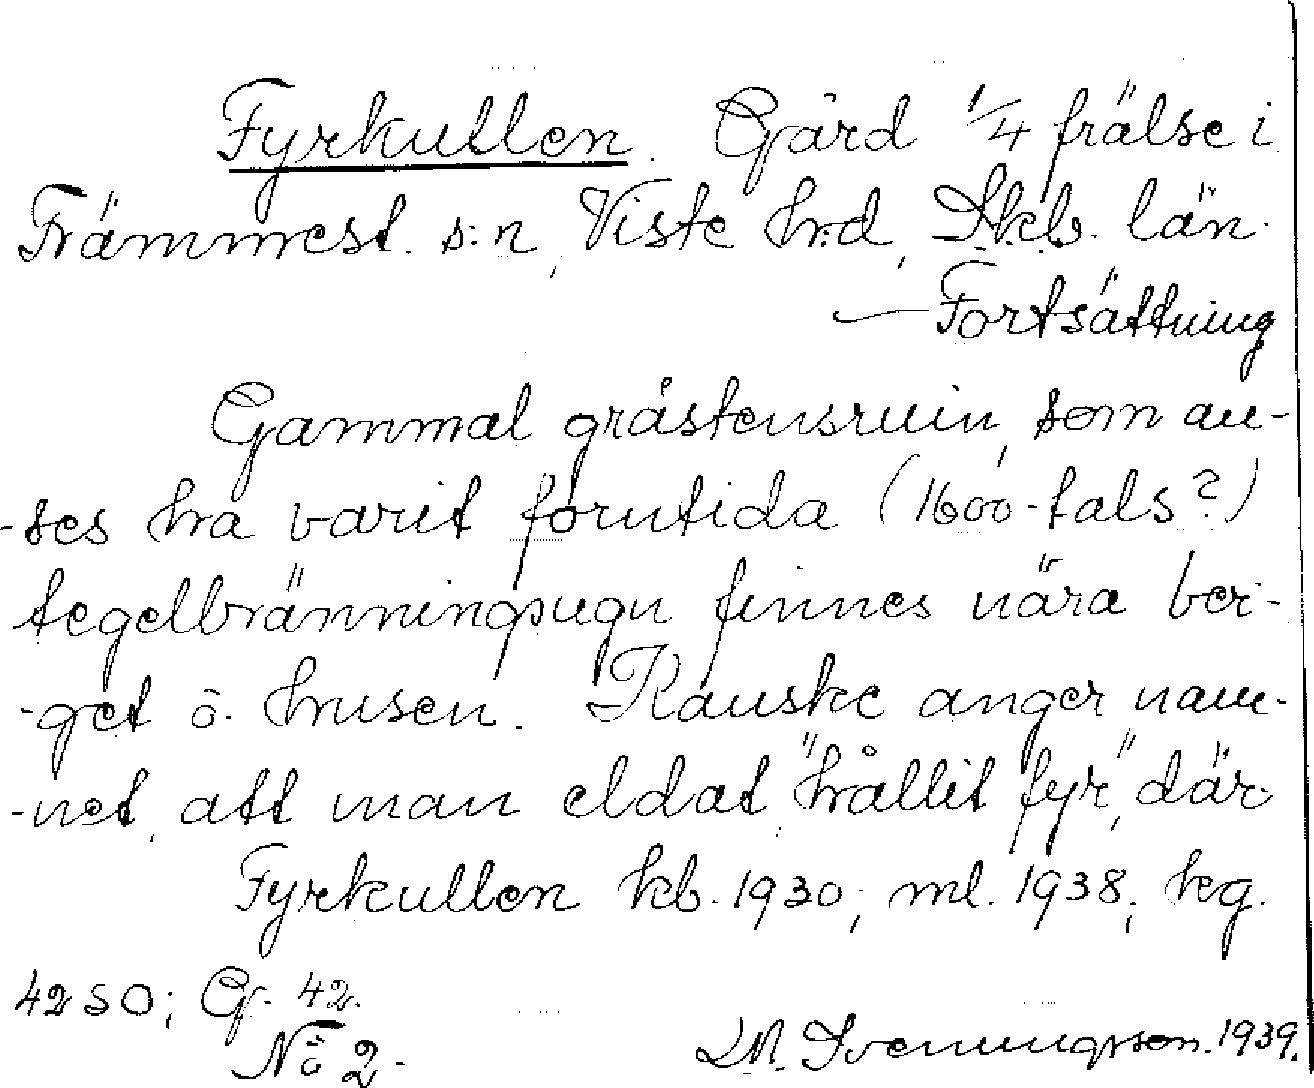 Fyrkullen. Gård 1/4 frälse i
Främmest. s:n, Viste hrd, Skb. län.
— Fortsättning
Gammal gråstensruin, som an-
-ses ha varit forntida (1600-tals?)
tegelbränningsugn finnes nära ber-
-get ö. husen. Kanske anger nam-
-net, att man eldat, "hållit fyr", där.
Fyrkullen kb. 1930; ml. 1938; kg.
42 SO; Gf. 42.
Nö 2.
LM. Svenungsson. 1939.